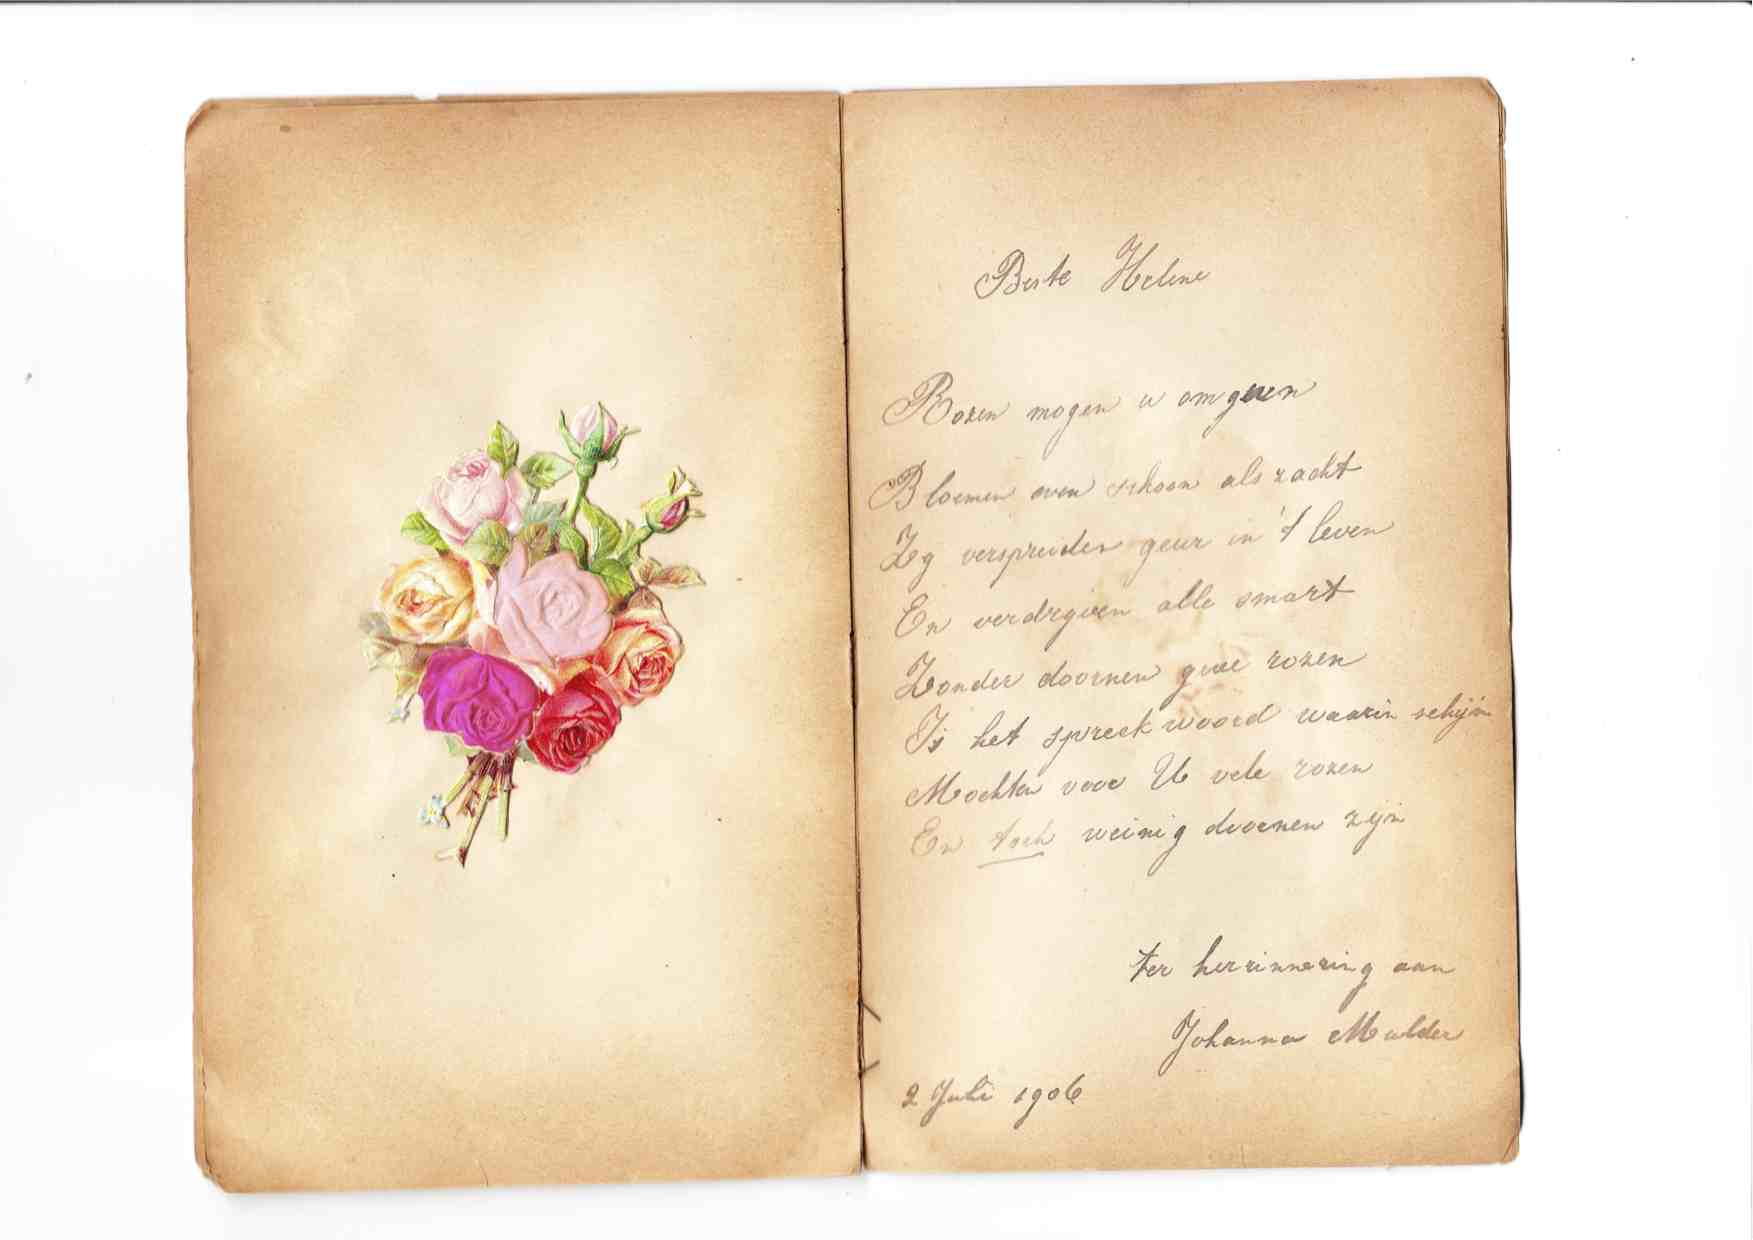 Beste Helene
Rozen mogen u omgeven
Bloemen even schoon als zacht
Zy verspreiden geur in 't leven
En verdryven alle smart
Zonder doornen geene rozen
Is het spreekwoord waarin schijn
Mochten voor U vele rozen
En toch weinig doornen zijn
ter herrinnering aan
Johanna Mulder
2 Juli 1906